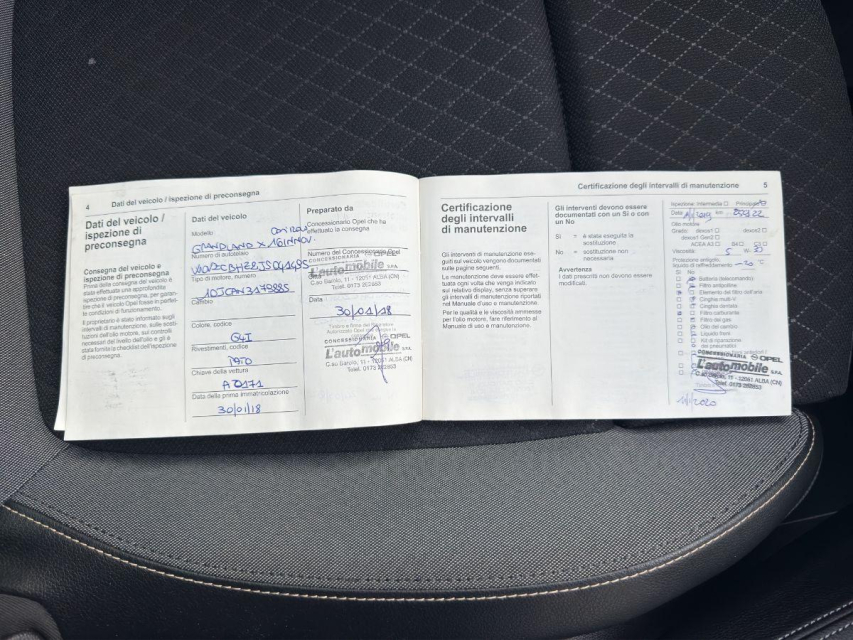 4 Dati del veicolo / Ispezione di preconsegna
Dati del veicolo /
ispezione di
preconsegna
Consegna del veicolo e
ispezione di preconsegna
Prima della consegna del veicolo è
stata effettuata una approfondita
ispezione di preconsegna, per garan-
tire che il veicolo Opel fosse in perfet-
te condizioni di funzionamento.
Il proprietario è stato informato sugli
intervalli di manutenzione, sulle sosti-
tuzioni dell'olio motore, sui controlli
necessari del livello dell'olio e gli è
stata fornita la checklist dell'ispezione
di preconsegna.
Dati del veicolo
Modello
GRANDLAND X
Numero di autotelaio
Tipo di motore, numero
10JCAN3179885
Cambio
Colore, codice
G4I
Rivestimenti, codice
Chiave della vettura
A0171
Data della prima immatricolazione
30/01/18
Preparato da
Concessionario Opel che ha
effettuato la consegna
Numero del Concessionario Opel
CONCESSIONARIA OPEL
L'automobile S.P.A.
C.so Barolo, 11 - 12051 ALBA (CN)
Data
30/01/18
CONCESSIONARIA OPEL
L'automobile S.P.A.
C.so Barolo, 11 - 12051 ALBA (CN)
Telef. 0173 262653
Certificazione degli intervalli di manutenzione 5
Certificazione
degli intervalli
di manutenzione
Gli interventi di manutenzione ese-
guiti sul veicolo vengono documentati
sulle pagine seguenti.
La manutenzione deve essere effet-
tuata ogni volta che venga indicato
sul relativo display, senza superare
gli intervalli di manutenzione riportati
nel Manuale d'uso e manutenzione.
Per le qualità e le viscosità ammesse
per l'olio motore, fare riferimento al
Manuale di uso e manutenzione.
Gli interventi devono essere
documentati con un Sì o con
un No
Sì = è stata eseguita la
sostituzione
No = sostituzione non
necessaria
Avvertenza
I dati prescritti non devono essere
modificati.
Ispezione: Intermedia Principale
Data km
Olio motore
Grado: dexos1 dexos2
dexos1 Gen2
ACEA A3 B4 C3
Viscosità: 5 W
Protezione antigelo,
liquido di raffreddamento -30 °C
Sì No
Batteria (telecomando)
Filtro antipolline
Elemento del filtro dell'aria
Cinghia multi-V
Cinghia di distribuzione
Filtro carburante
Filtro del gas
Olio del cambio
Liquido freni
Kit di riparazione
dei pneumatici
CONCESSIONARIA OPEL
L'automobile S.P.A.
C.so Barolo, 11 - 12051 ALBA (CN)
Telef. 0173 262653